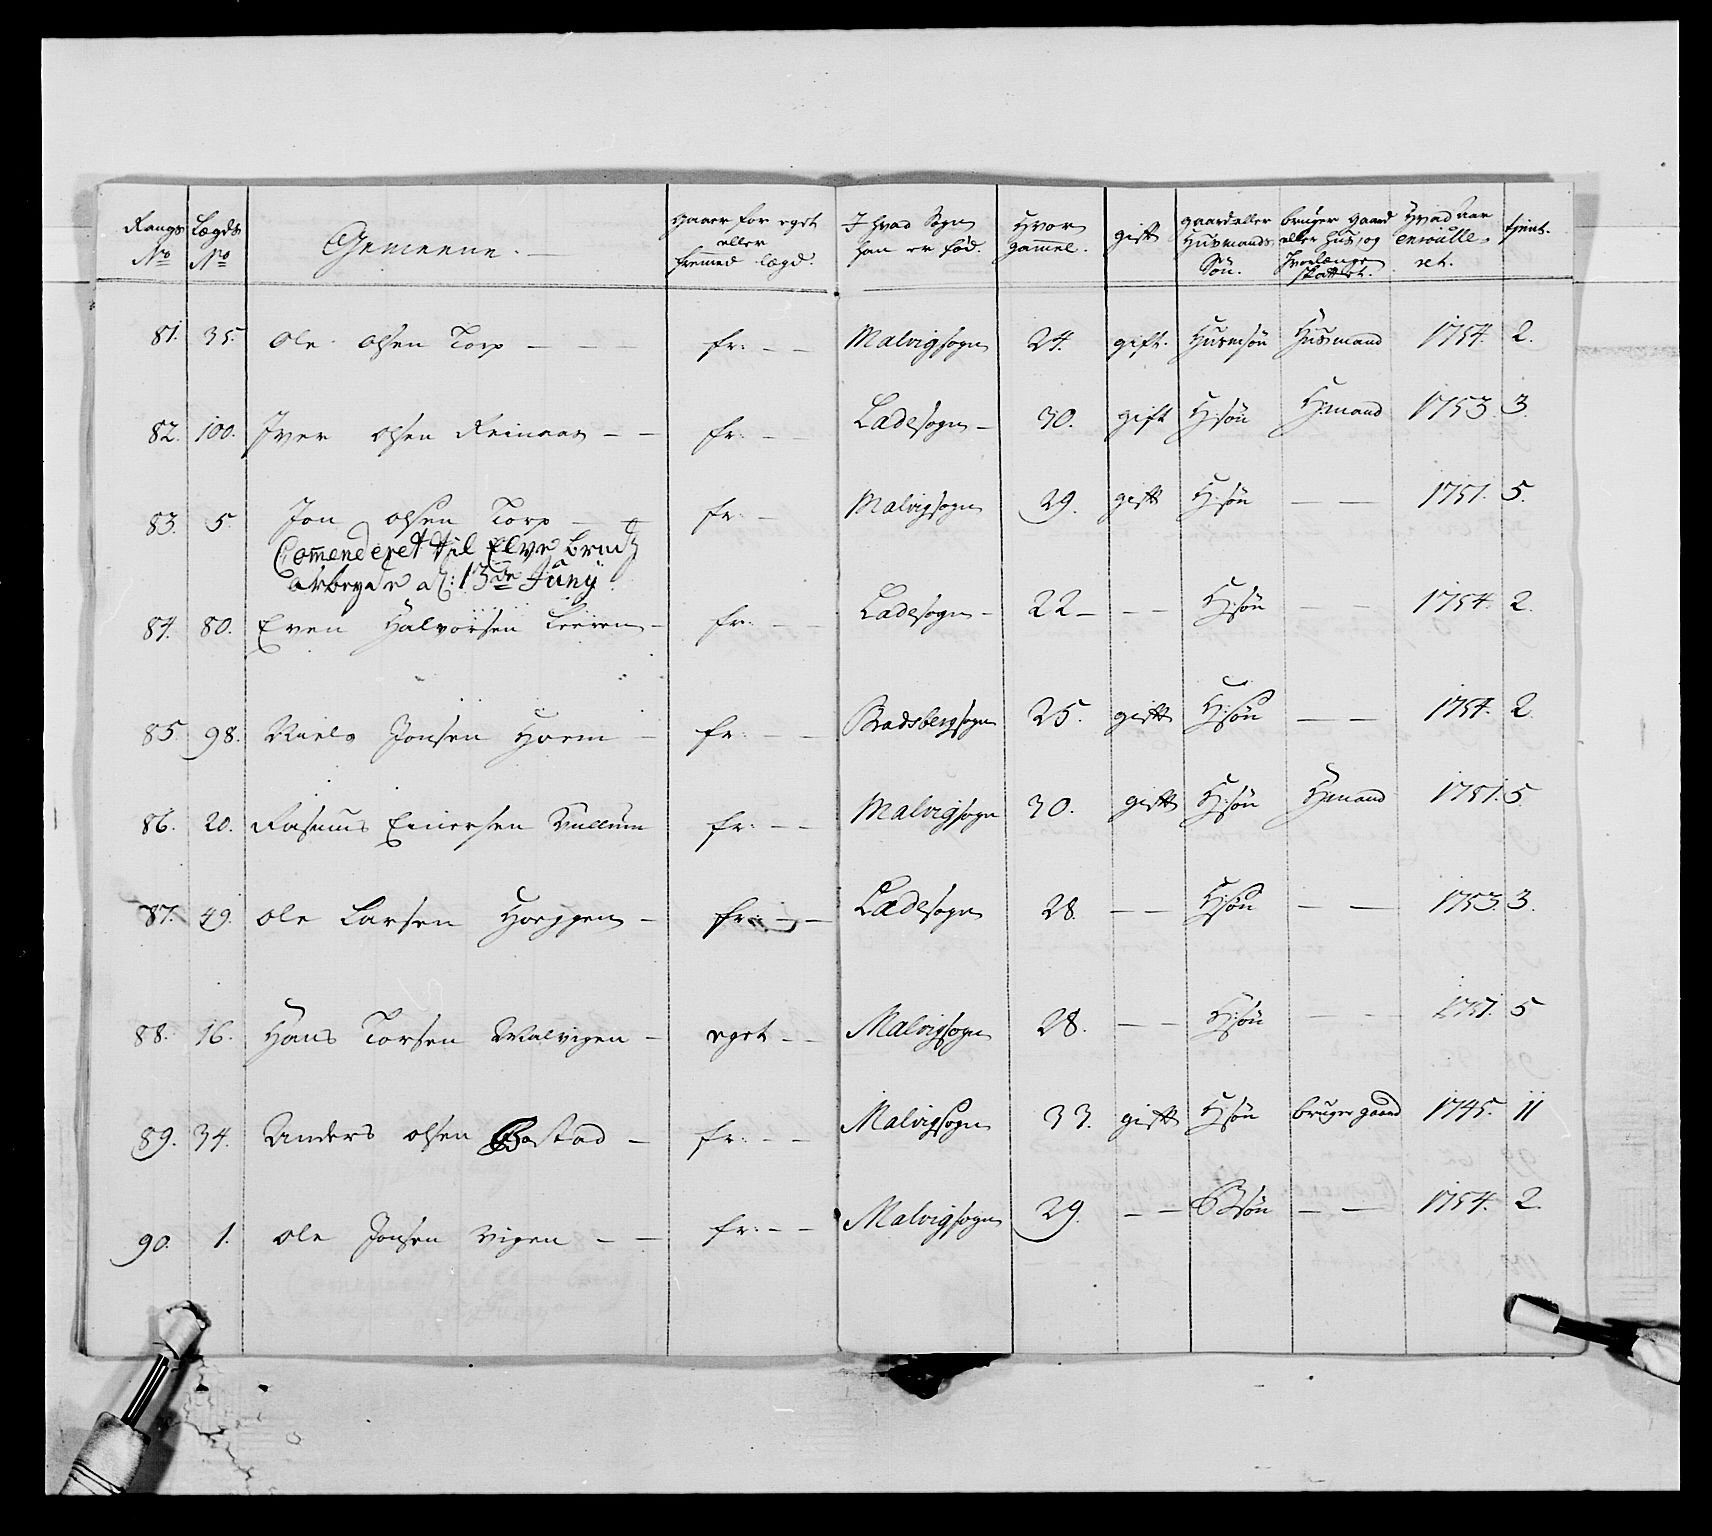 Rangs No Lægds No Gemeene. Gaaer for eget eller fremmed lægd. I hvad Sogn han er fød. Hvor gammel. gift gaard eller Huusmands Søn. bruger gaard eller huus, og hvorlænge skattet. Hvad Aar enroulleret. tient.
81. 35. Ole Olsen Torp - - - fr: - - Malvigsogn 24. gift. Husmsøn Husmand 1754. 2.
82. 100. Iver Olsen Reinaas - - fr: - Ladesogn - 30. gift H:søn H:mand 1753. 3.
83. 5. Jon Olsen Torp - fr: - Malvigsogn 29. gift H:søn - - 1751. 5.
Comenderet til Elve
arbeyde d: 13de Juny
84. 80. Even Halvorsen - fr: - - Ladesogn - 22 - - - H:søn - - 1754. 2.
85. 98. Niels Jonsen Hoem - fr: - - Bradsbergsogn 25. gift H:søn - - 1754. 2.
86. 20. Rasmus Einersen Vullum fr: - - Malvigsogn 30. gift H:søn H:mand 1751. 5.
87. 49. Ole Larsen - fr: - - Ladesogn 28. - - H:søn - - 1753. 3.
88. 16. Hans Torsen Malvigen - eget - - Malvigsogn 28. - - H:søn - - 1751. 5
89. 34. Anders Olsen Bostad - fr: - - Malvigsogn 33. gift H:søn bruger gaard 1745. 11
90. 1. Ole Jonsen Vigen - - fr: - - Malvigsogn 29. - - B:søn - - 1754. 2.